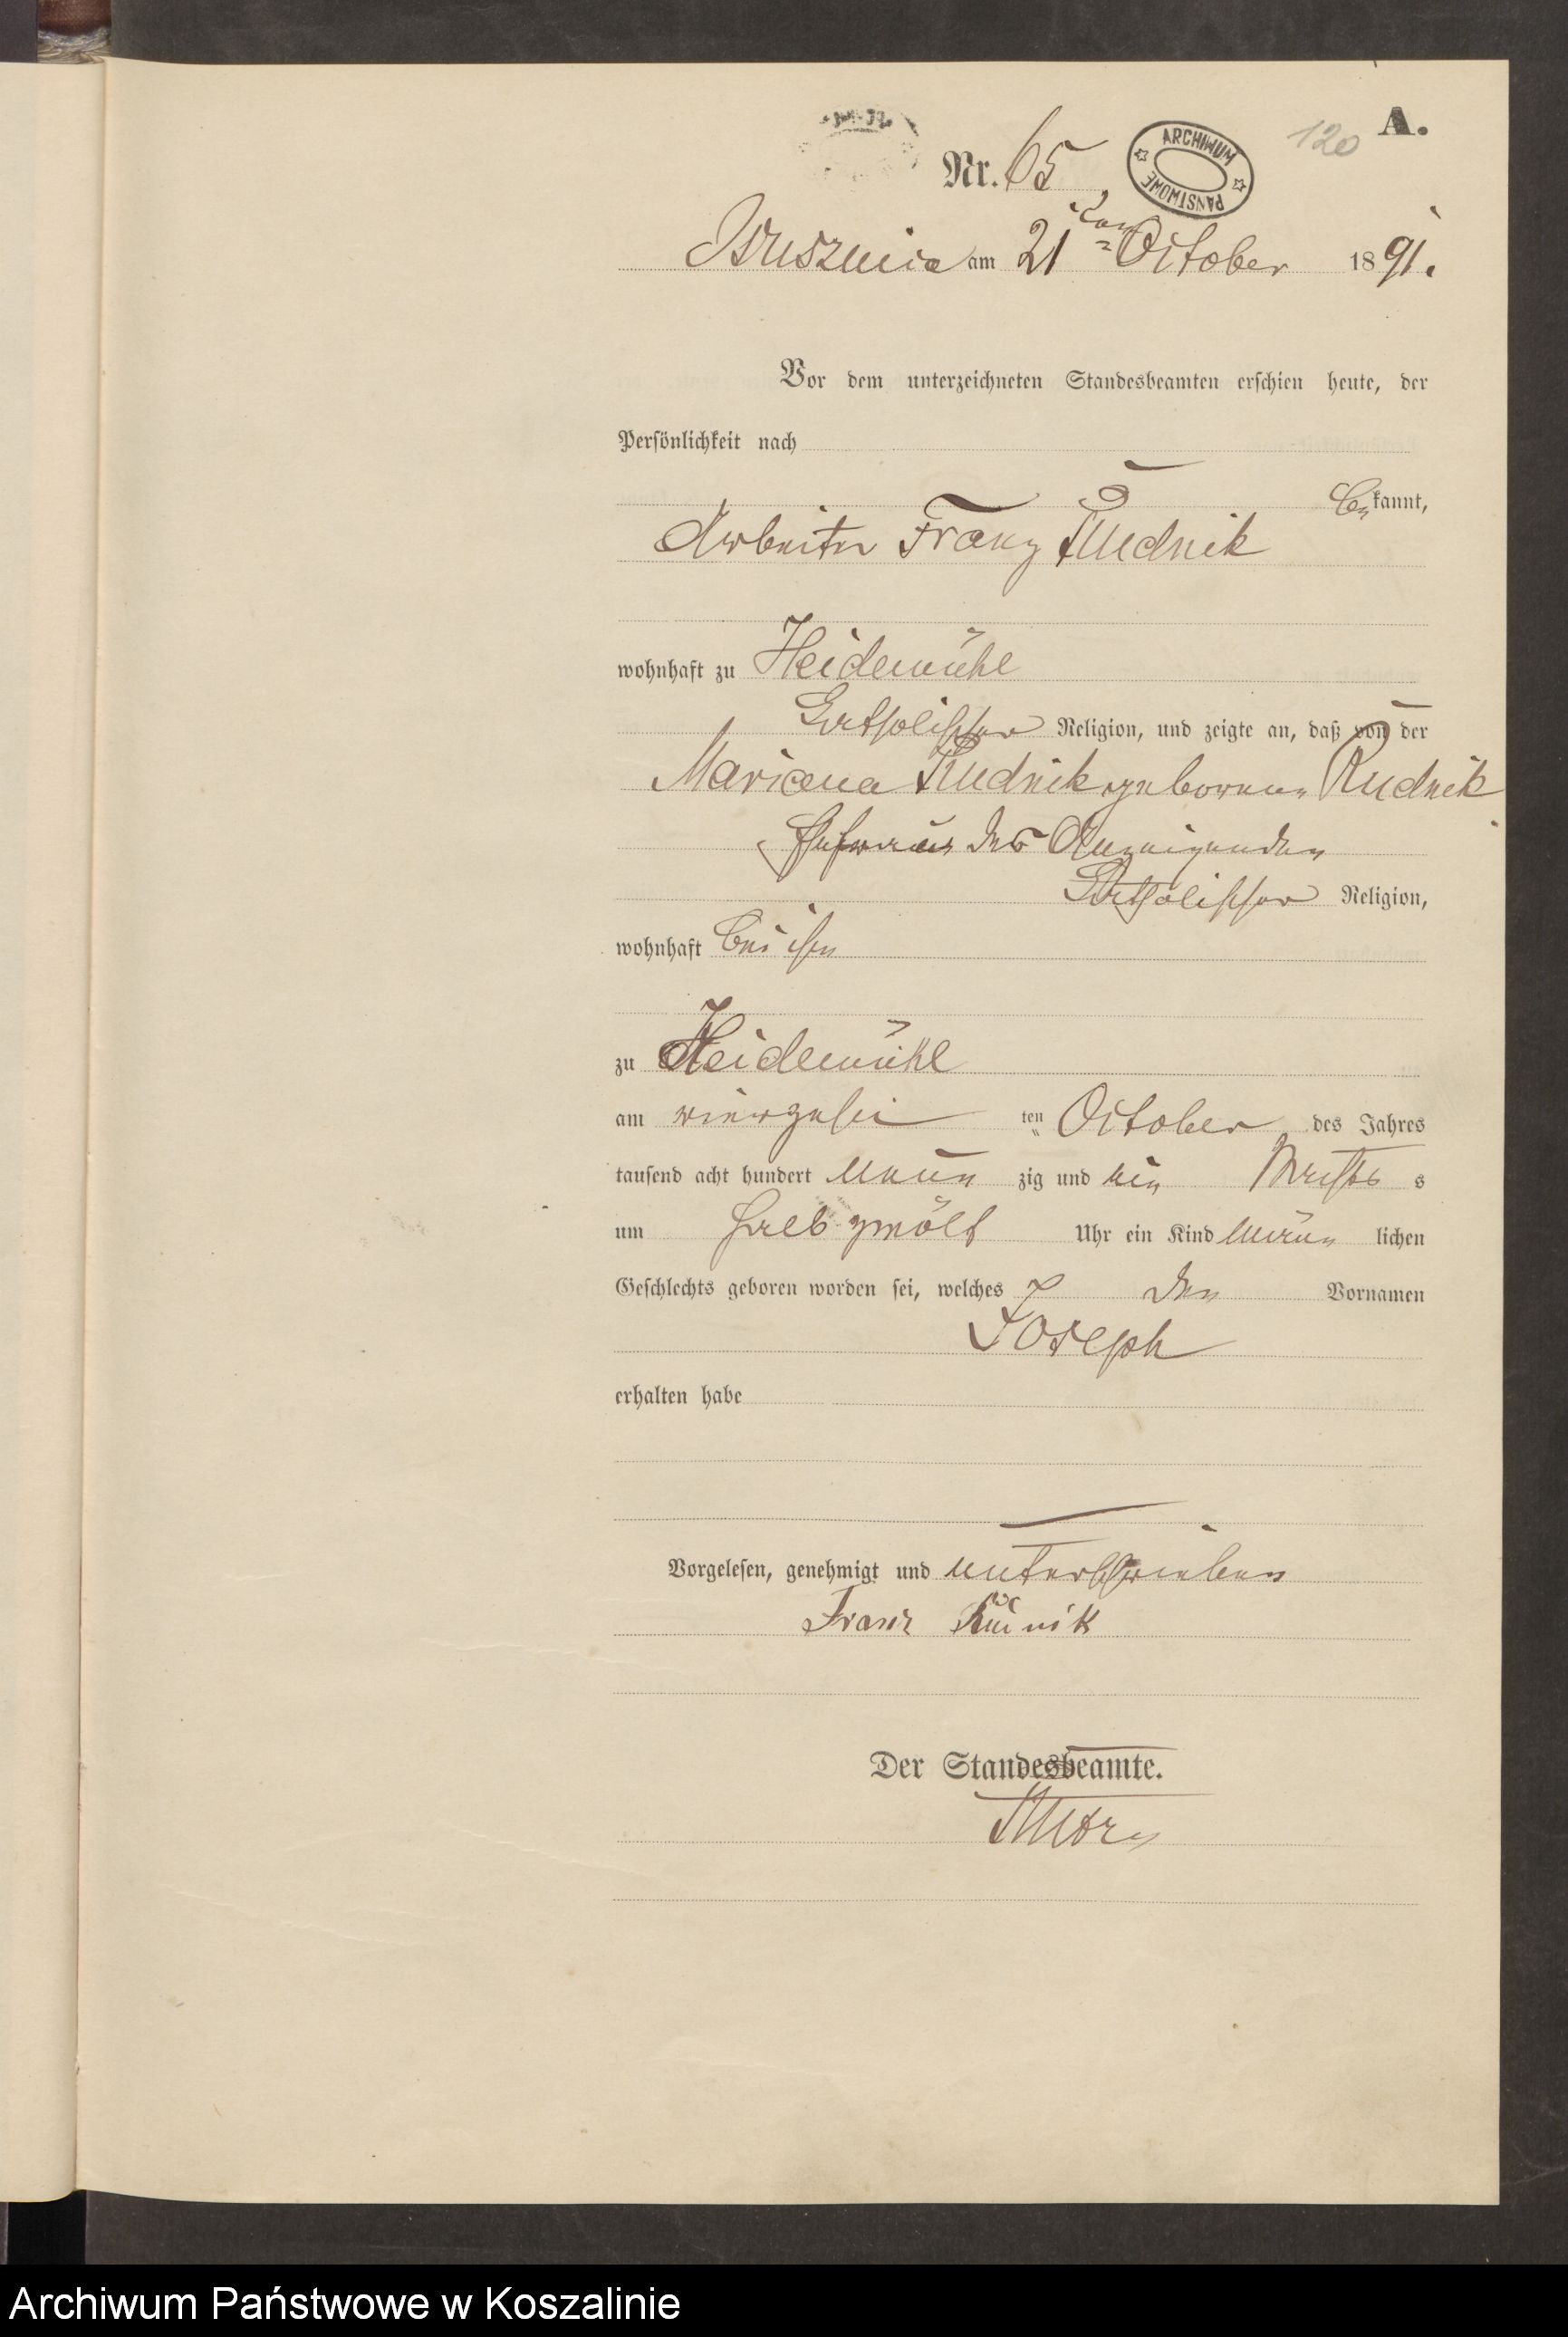 A.
120
Nr. 65
ARCHIWUM PAŃSTWOWE
Bruszniea am 21ten October 1891.
Vor dem unterzeichneten Standesbeamten erschien heute, der
Persönlichkeit nach
bekannt,
Arbeiter Franz Rudnik
wohnhaft zu Heidemühl
katholischer Religion, und zeigte an, daß von der
Marianna Rudnik geborenen Rudnik
Ehefrau des Anzeigenden
katholischer Religion,
wohnhaft bei ihm
zu Heidemühl
am vierzehn ten October des Jahres
tausend acht hundert neun zig und ein s
um halb zwölf Uhr ein Kind männ lichen
Geschlechts geboren worden sei, welches den Vornamen
Joseph
erhalten habe
Vorgelesen, genehmigt und unterschrieben
Franz Rudnik
Der Standesbeamte.
Archiwum Państwowe w Koszalinie